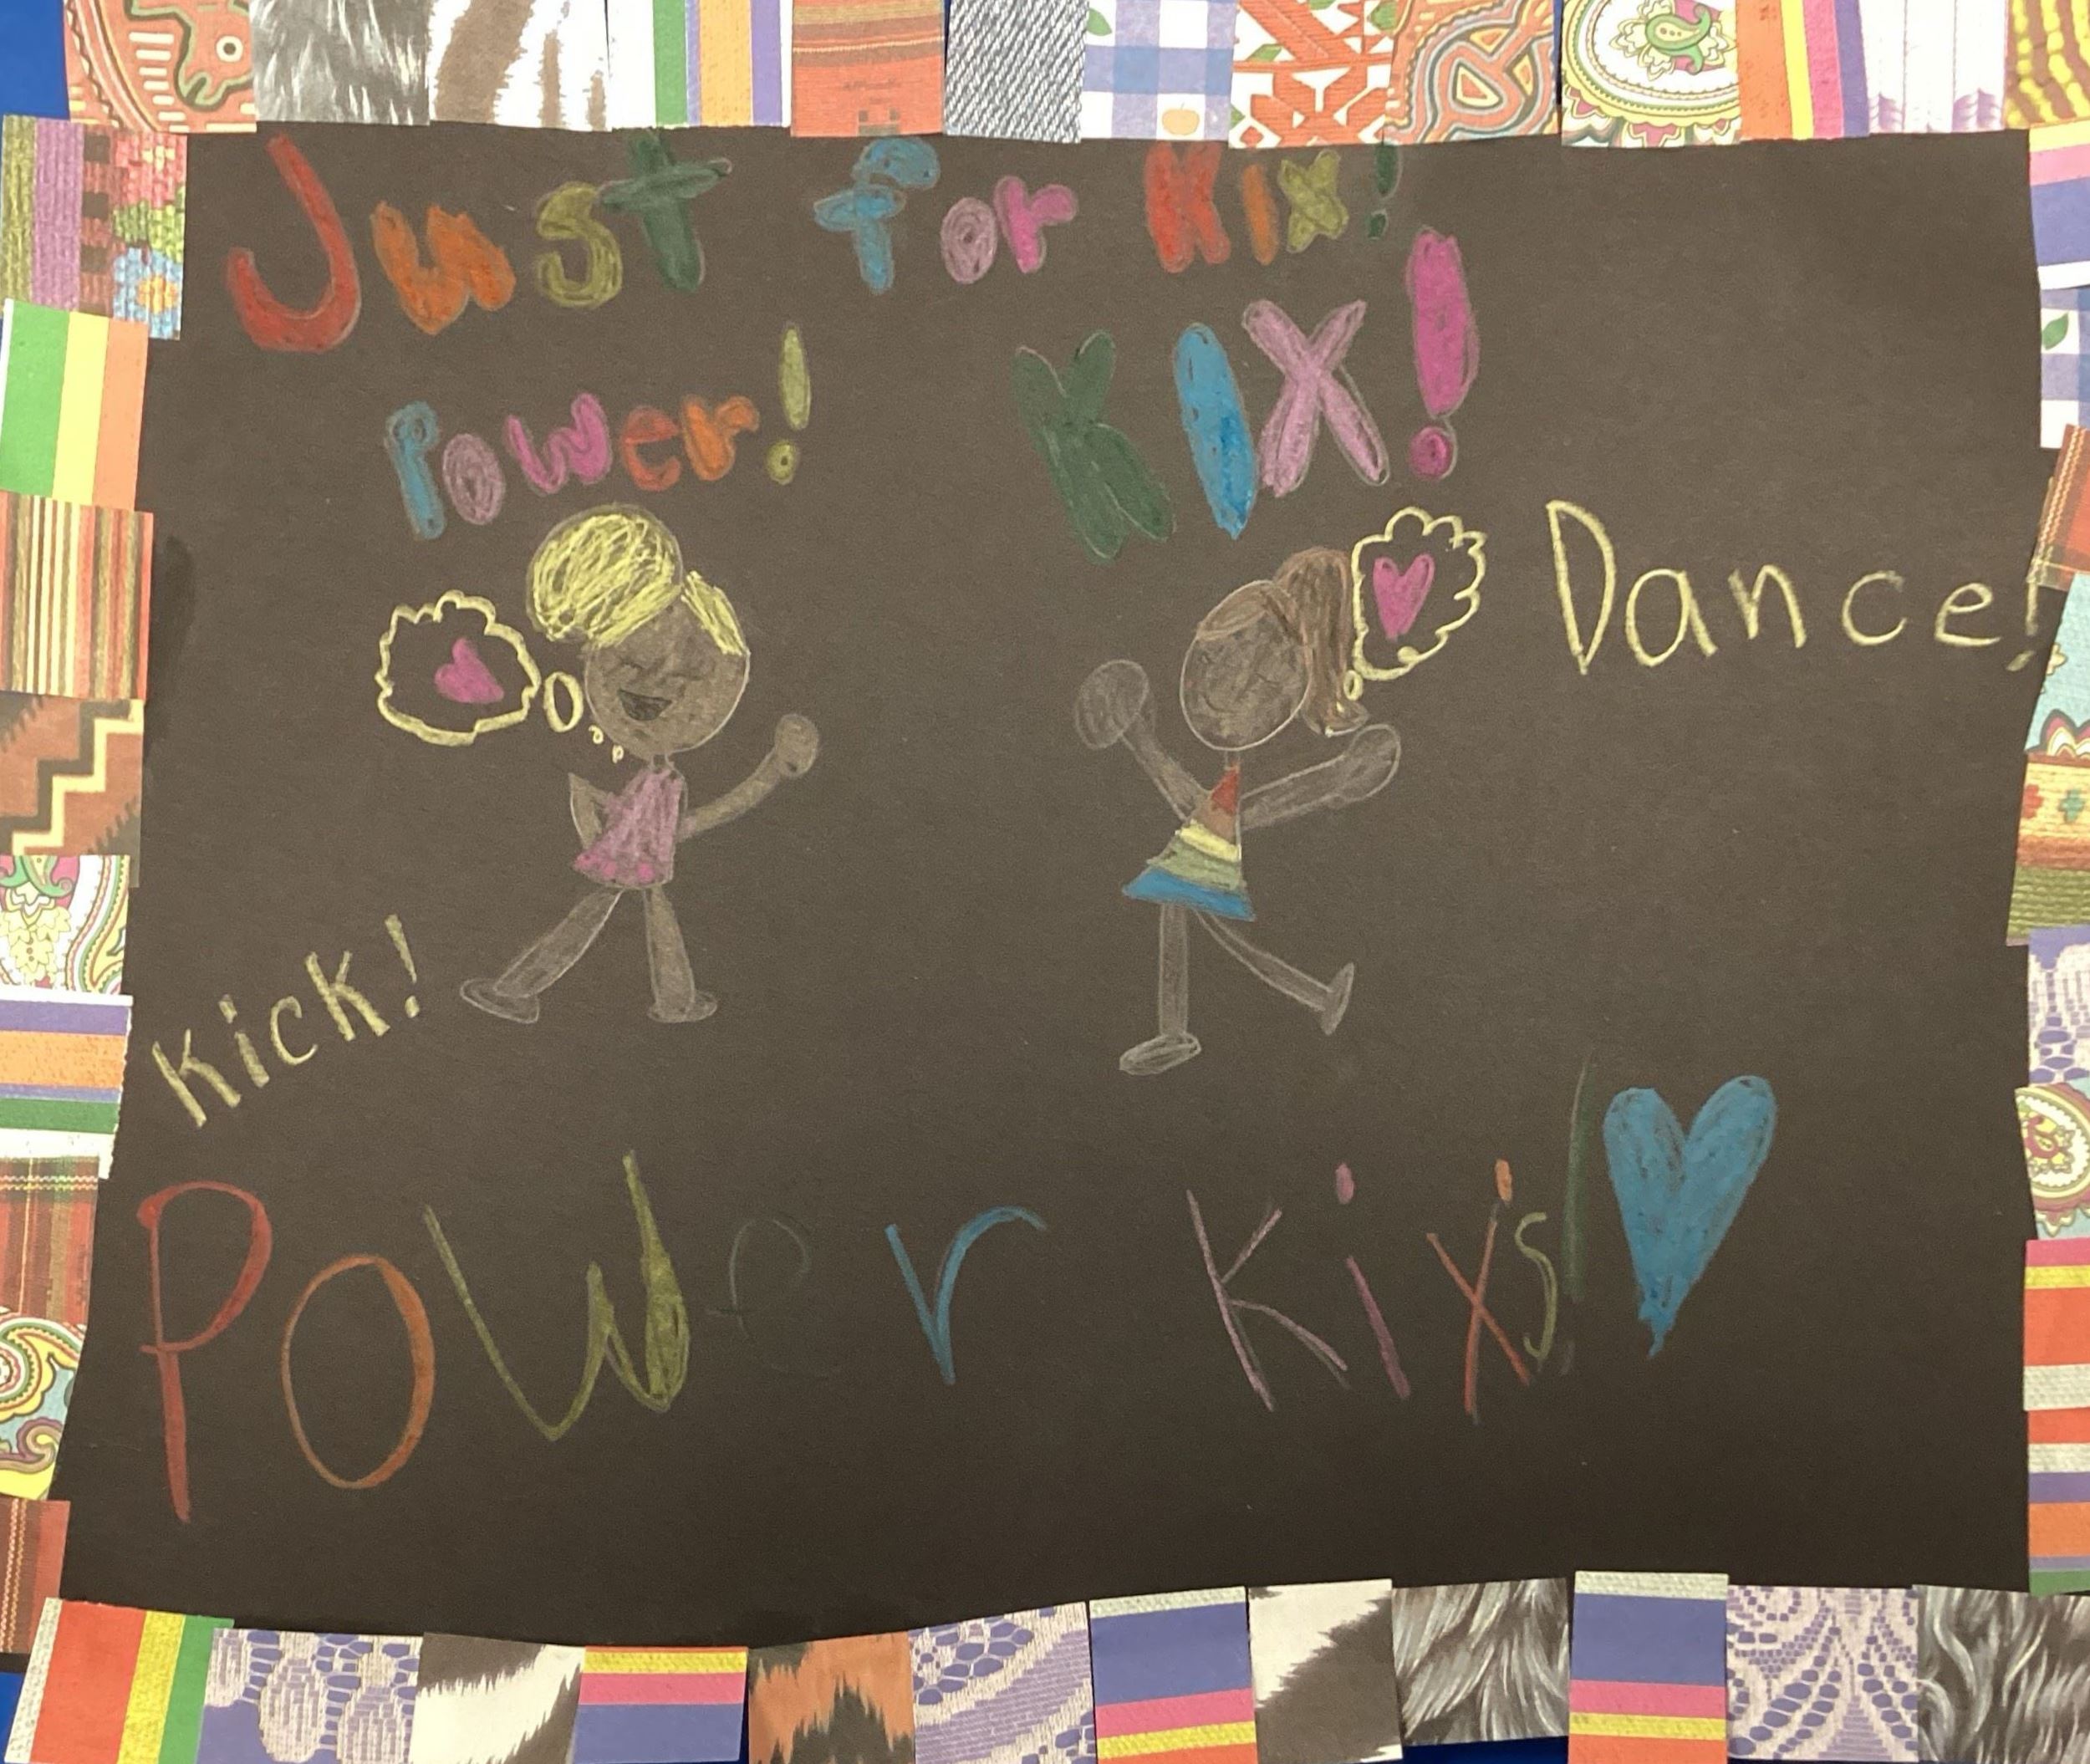 Just for Kix!
Power! KIX!
Dance!
Kick!
Power Kixs!